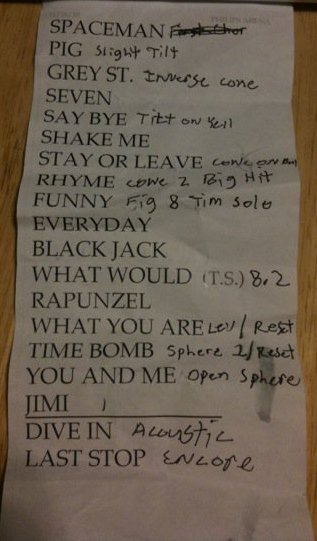 PHILIPS ARENA
SPACEMAN
PIG Slight Tilt
GREY ST. Inverse cone
SEVEN
SAY BYE Tilt on yell
SHAKE ME
STAY OR LEAVE cone on
RHYME cone 2 Big Hit
FUNNY Fig 8 Tim Solo
EVERYDAY
BLACK JACK
WHAT WOULD (T.S.) 8.2
RAPUNZEL
WHAT YOU ARE Lev/Reset
TIME BOMB Sphere 2/Reset
YOU AND ME Open Sphere
JIMI
DIVE IN Acoustic
LAST STOP ENCORE